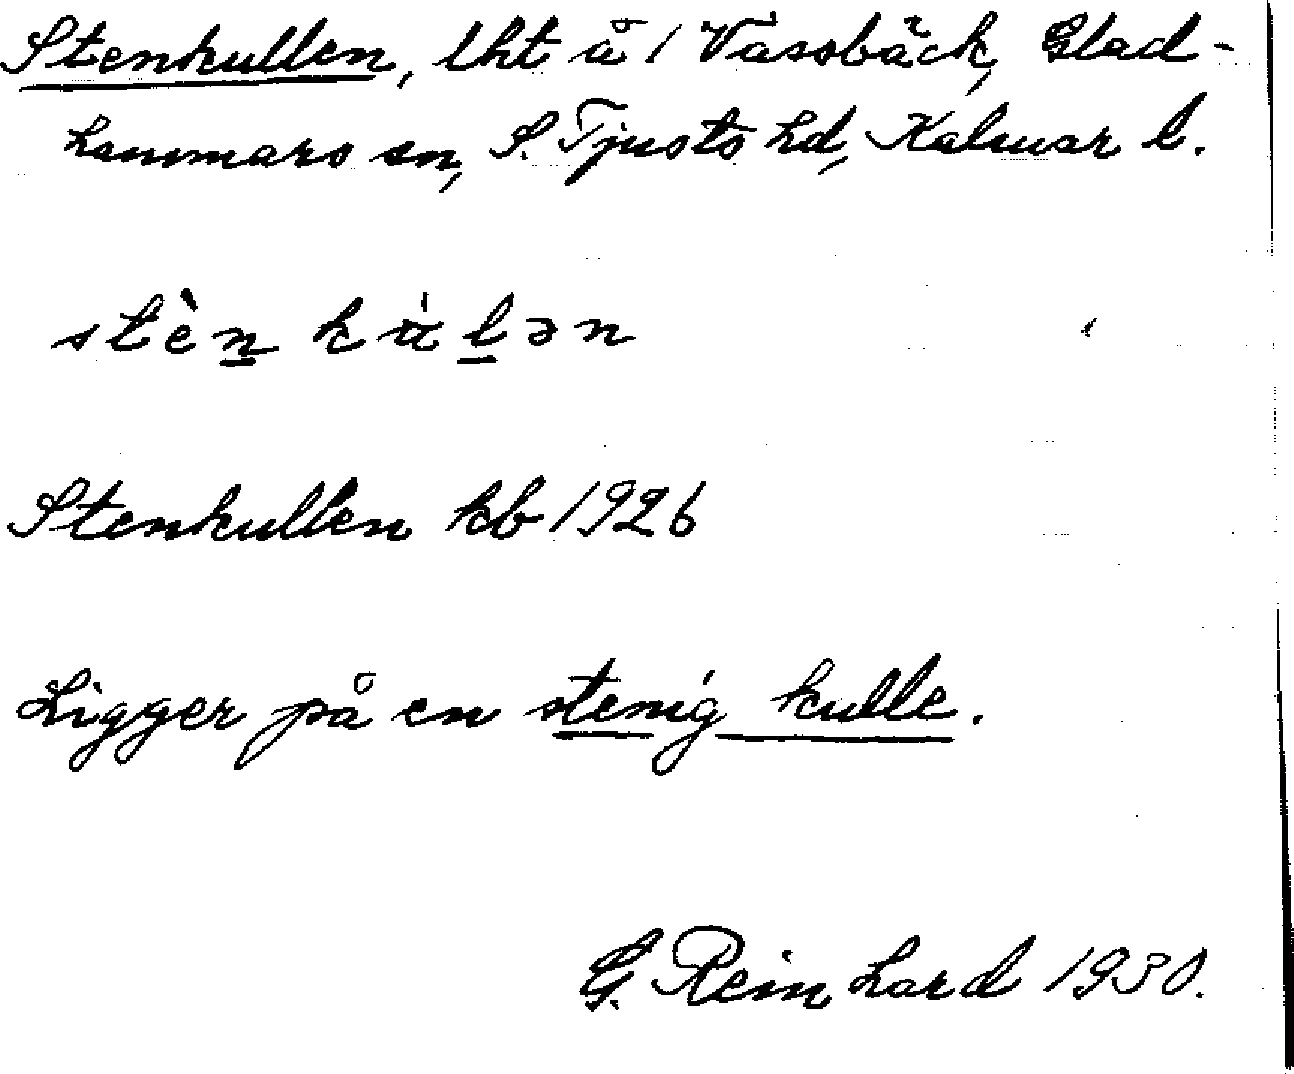 Stenkullen, lht å 1 Vassbäck, Glad-
hammars sn, S. Tjusts hd, Kalmar l.
stèn kùlən
Stenkullen kb 1926
Ligger på en stenig kulle.
G. Reinhard 1930.